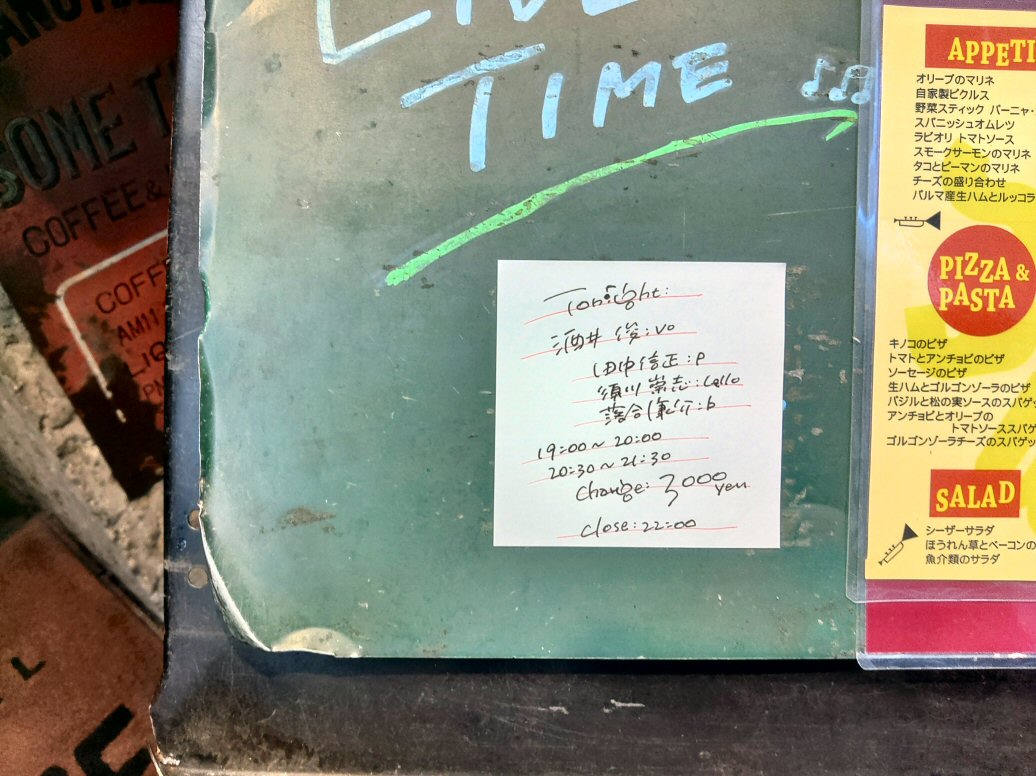 SOME T
COFFEE &
COFF
AM11
LIQ
PM
LIVE
TIME
Tonight:
酒井 俊:vo
田中信正:p
須川崇志:cello
落合康介:b
19:00~20:00
20:30~21:30
Charge: 3000 yen
Close:22:00
APPETI
オリーブのマリネ
自家製ピクルス
野菜スティック バーニャ・
スパニッシュオムレツ
ラビオリ トマトソース
スモークサーモンのマリネ
タコとピーマンのマリネ
チーズの盛り合わせ
パルマ産生ハムとルッコラ
PIZZA &
PASTA
キノコのピザ
トマトとアンチョビのピザ
ソーセージのピザ
生ハムとゴルゴンゾーラのピザ
バジルと松の実ソースのスパゲッ
アンチョビとオリーブの
トマトソーススパゲ
ゴルゴンゾーラチーズのスパゲッ
SALAD
シーザーサラダ
ほうれん草とベーコンの
魚介類のサラダ